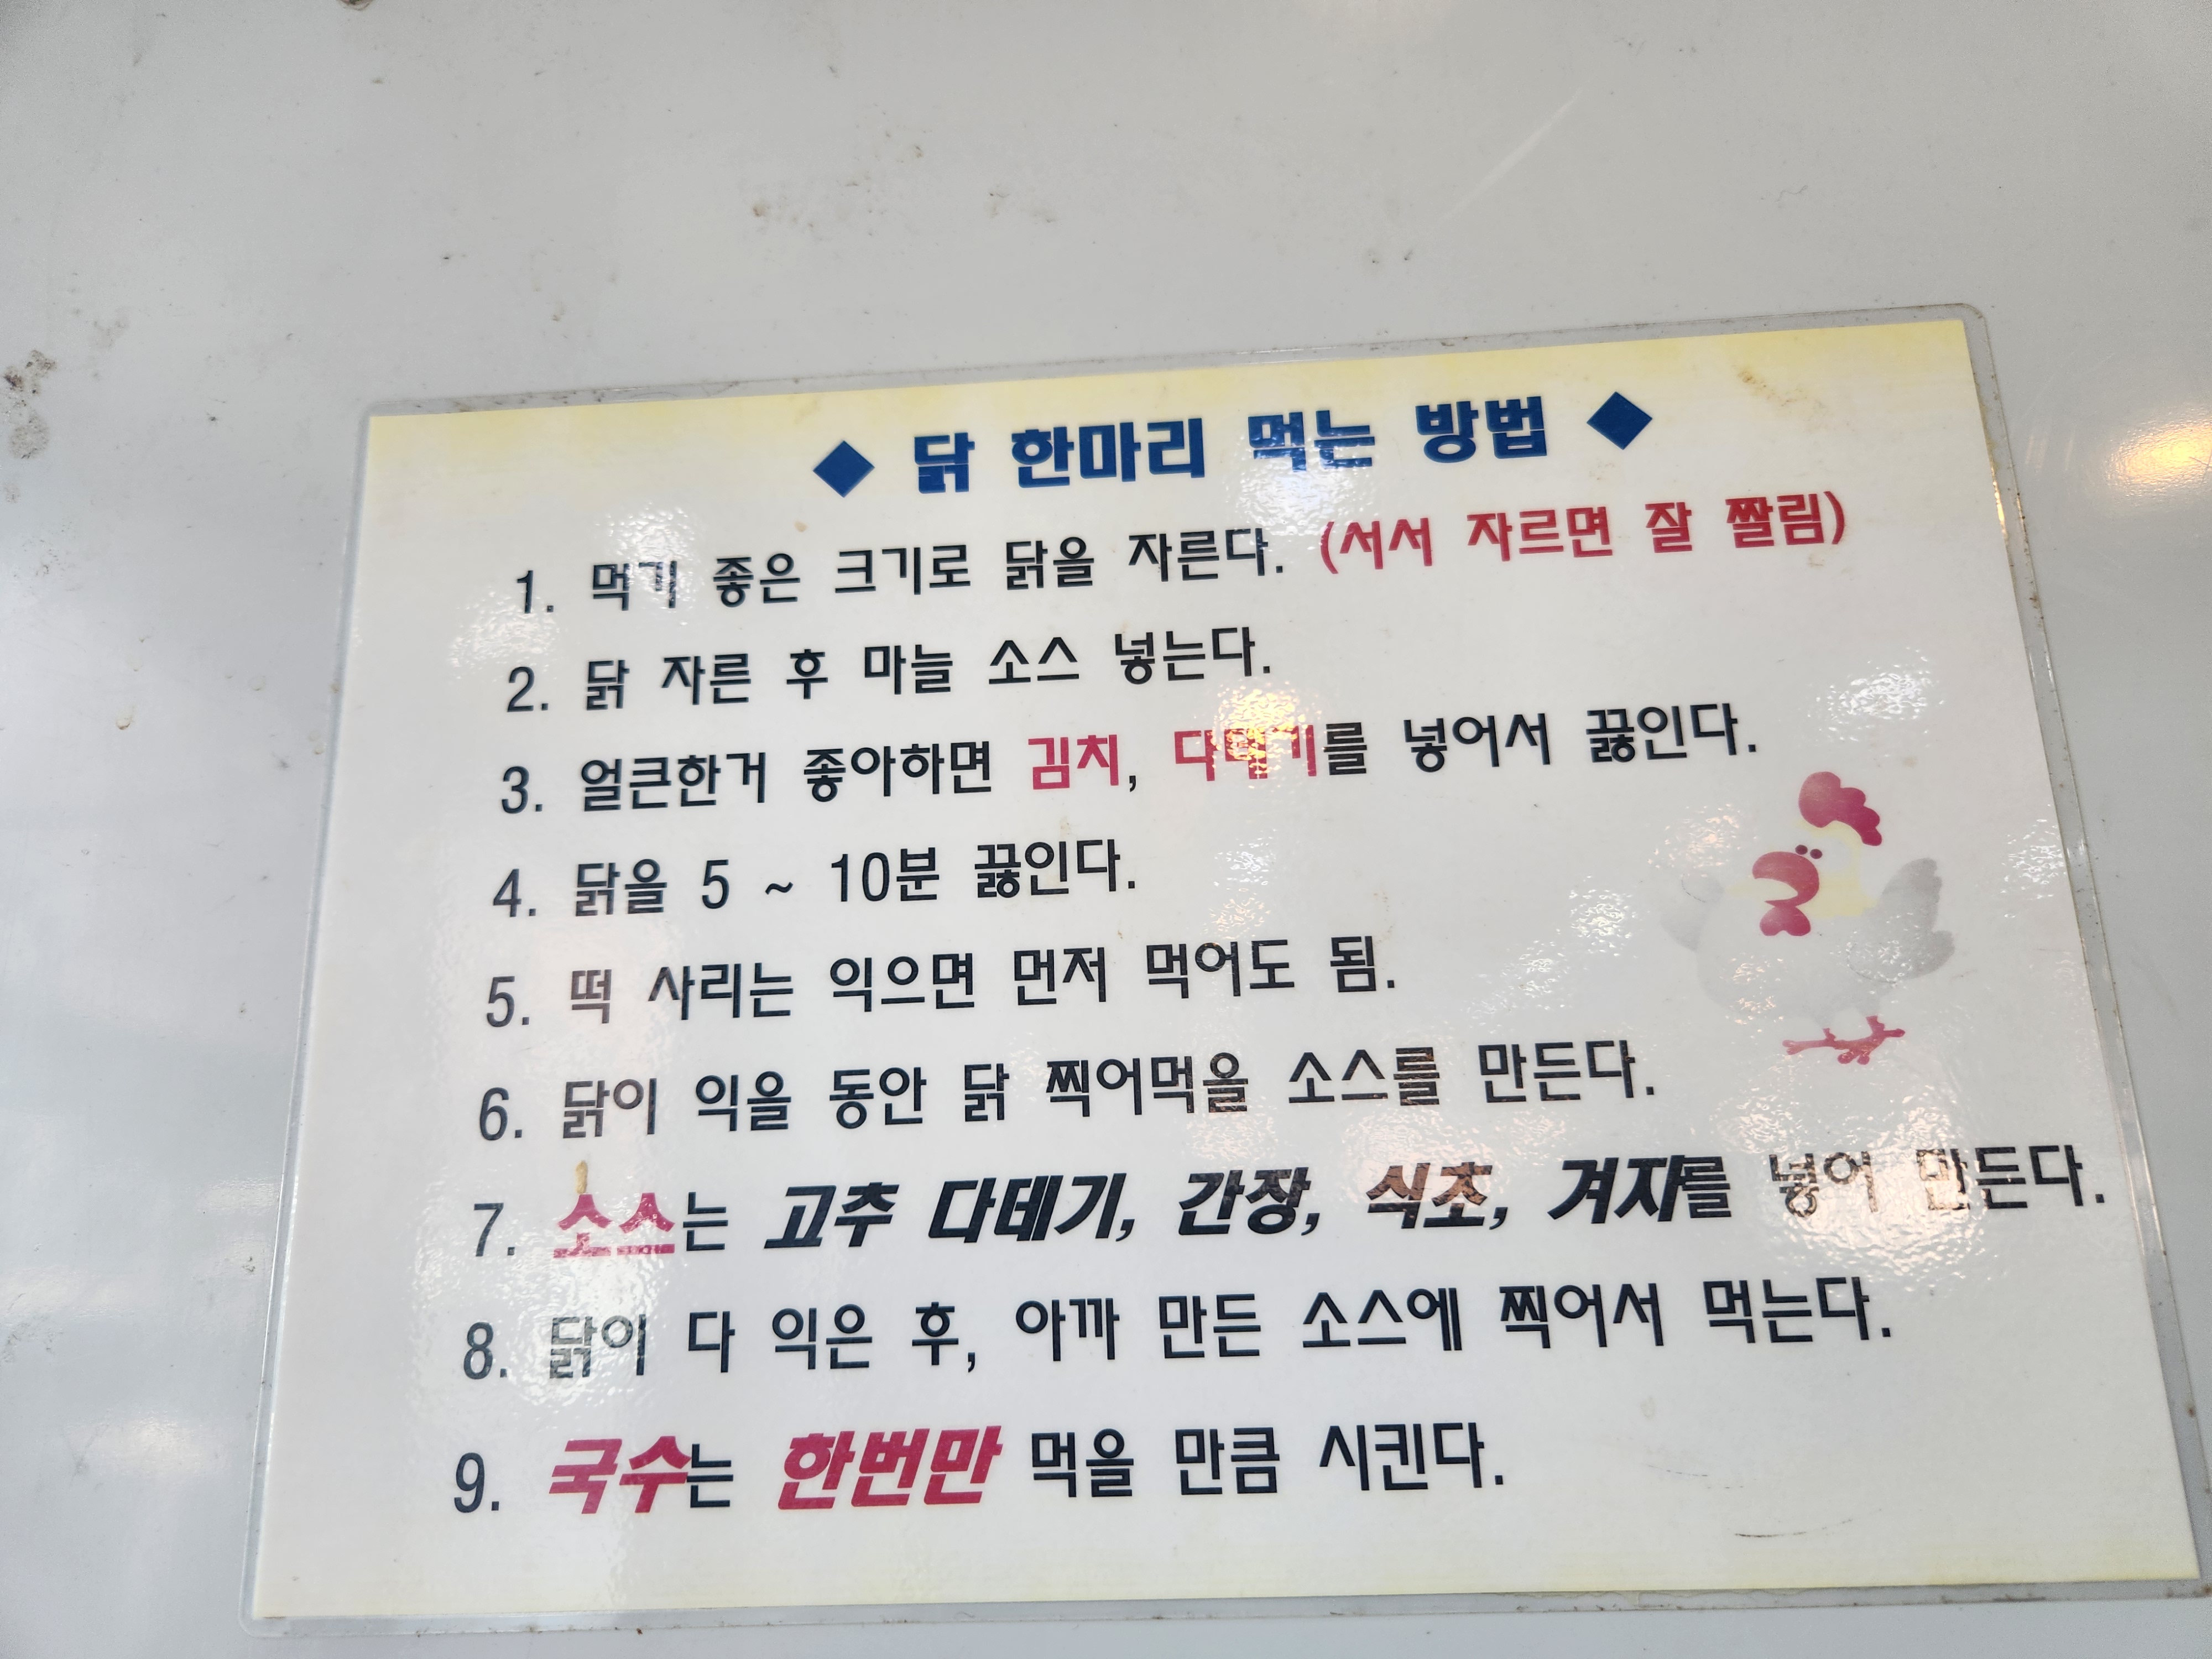 ◆ 닭 한마리 먹는 방법 ◆
1. 먹기 좋은 크기로 닭을 자른다. (서서 자르면 잘 짤림)
2. 닭 자른 후 마늘 소스 넣는다.
3. 얼큰한거 좋아하면 김치, 다테기를 넣어서 끓인다.
4. 닭을 5 ~ 10분 끓인다.
5. 떡 사리는 익으면 먼저 먹어도 됨.
6. 닭이 익을 동안 닭 찍어먹을 소스를 만든다.
7. 소스는 고추 다데기, 간장, 식초, 겨자를 넣어 만든다.
8. 닭이 다 익은 후, 아까 만든 소스에 찍어서 먹는다.
9. 국수는 한번만 먹을 만큼 시킨다.